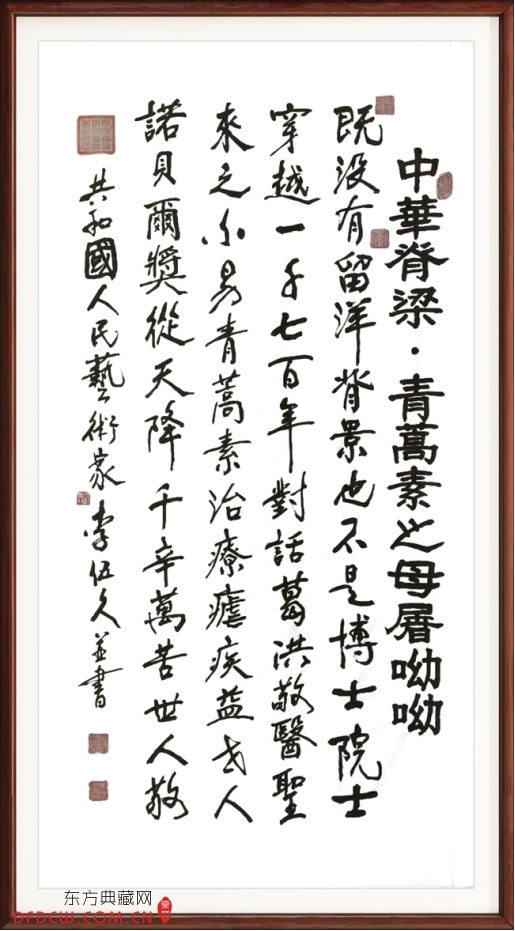 中華脊梁·青蒿素之母屠呦呦
既没有留洋背景也不是博士院士
穿越一千七百年對話葛洪敬醫聖
來之不易青蒿素治療瘧疾益世人
諾貝爾獎從天降千辛萬苦世人敬
共和國人民藝術家李伍久並書
东方典藏网
DFDCW.COM.CN